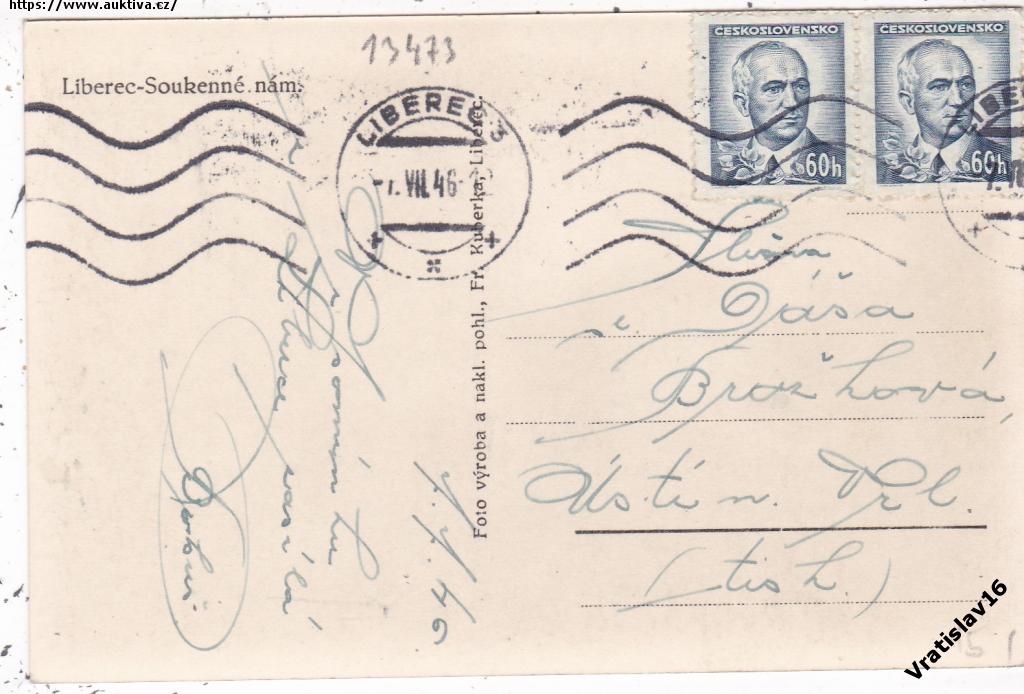 https://www.auktiva.cz/
13473
Liberec-Soukenné nám.
LIBEREC 3
-7. VII. 46-
ČESKOSLOVENSKO
60h
ČESKOSLOVENSKO
60h
LIBEREC
7. VII
Foto výroba a nakl. pohl., Fr. Kuberka, Liberec.
Vzpomínku
srdce zasílá
7.7.46
Slečna
Dáša
Brožková,
Ústí n. Orl.
(tisk.)
Vratislav16